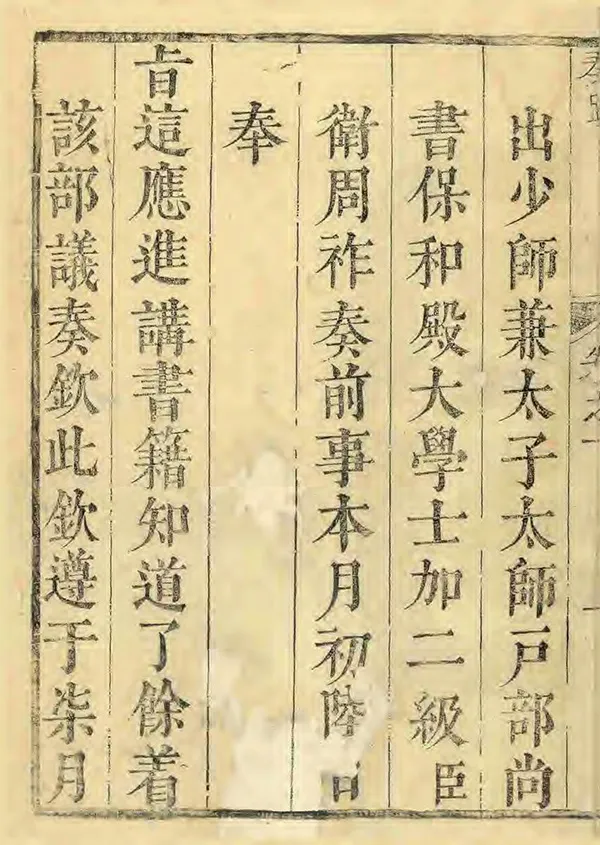 奏疏
卷之一
一
出少師兼太子太師戸部尚
書保和殿大學士加二級臣
衛周祚奏前事本月初陸日
奉
旨這應進講書籍知道了餘着
該部議奏欽此欽遵于柒月